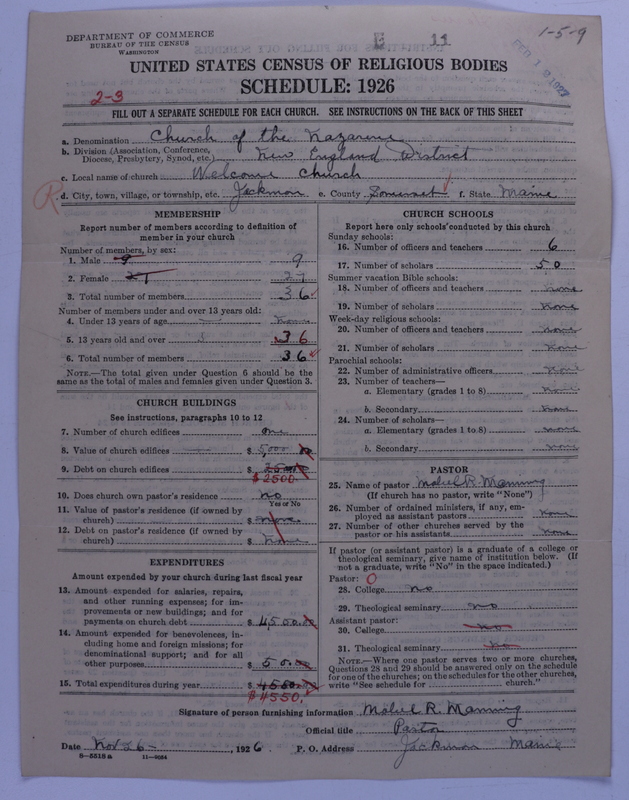 DEPARTMENT OF COMMERCE
BUREAU OF THE CENSUS
WASHINGTON
11
1-5-9
UNITED STATES CENSUS OF RELIGIOUS BODIES
SCHEDULE: 1926
2-3
FILL OUT A SEPARATE SCHEDULE FOR EACH CHURCH. SEE INSTRUCTIONS ON THE BACK OF THIS SHEET
a. Denomination Church of the Nazarene
b. Division (Association, Conference, Diocese, Presbytery, Synod, etc.) New England District
c. Local name of church Welcome Church
R
d. City, town, village, or township, etc. Jackman e. County Somerset f. State Maine
MEMBERSHIP
Report number of members according to definition of
member in your church
Number of members, by sex:
1. Male 9 9
2. Female 27 27
3. Total number of members 36
Number of members under and over 13 years old:
4. Under 13 years of age none
5. 13 years old and over 36
6. Total number of members 36
NOTE.—The total given under Question 6 should be the
same as the total of males and females given under Question 3.
CHURCH BUILDINGS
See instructions, paragraphs 10 to 12
7. Number of church edifices one
8. Value of church edifices $ 5,000
9. Debt on church edifices $
$2500
10. Does church own pastor's residence No
Yes or No
11. Value of pastor's residence (if owned by
church) $ none
12. Debt on pastor's residence (if owned by
church) $ none
EXPENDITURES
Amount expended by your church during last fiscal year
13. Amount expended for salaries, repairs,
and other running expenses; for im-
provements or new buildings; and for
payments on church debt $ 4,500
14. Amount expended for benevolences, in-
cluding home and foreign missions; for
denominational support; and for all
other purposes $ 50
15. Total expenditures during year $ 4550
$4550
CHURCH SCHOOLS
Report here only schools conducted by this church
Sunday schools:
16. Number of officers and teachers 6
17. Number of scholars 50
Summer vacation Bible schools:
18. Number of officers and teachers none
19. Number of scholars none
Week-day religious schools:
20. Number of officers and teachers none
21. Number of scholars none
Parochial schools:
22. Number of administrative officers none
23. Number of teachers—
a. Elementary (grades 1 to 8) none
b. Secondary none
24. Number of scholars—
a. Elementary (grades 1 to 8) none
b. Secondary none
PASTOR
25. Name of pastor Mabel R. Manning
(If church has no pastor, write "None")
26. Number of ordained ministers, if any, em-
ployed as assistant pastors none
27. Number of other churches served by the
pastor or his assistants none
If pastor (or assistant pastor) is a graduate of a college or
theological seminary, give name of institution below. (If
not a graduate, write "No" in the space indicated.)
Pastor: O
28. College no
29. Theological seminary no
Assistant pastor:
30. College no
31. Theological seminary no
NOTE.—Where one pastor serves two or more churches,
Questions 28 and 29 should be answered only on the schedule
for one of the churches; on the schedules for the other churches,
write "See schedule for church."
Signature of person furnishing information Mabel R. Manning
Official title Pastor
Date Nov 26 -, 1926 P. O. Address Jackman Maine
8—5518a 11—9084